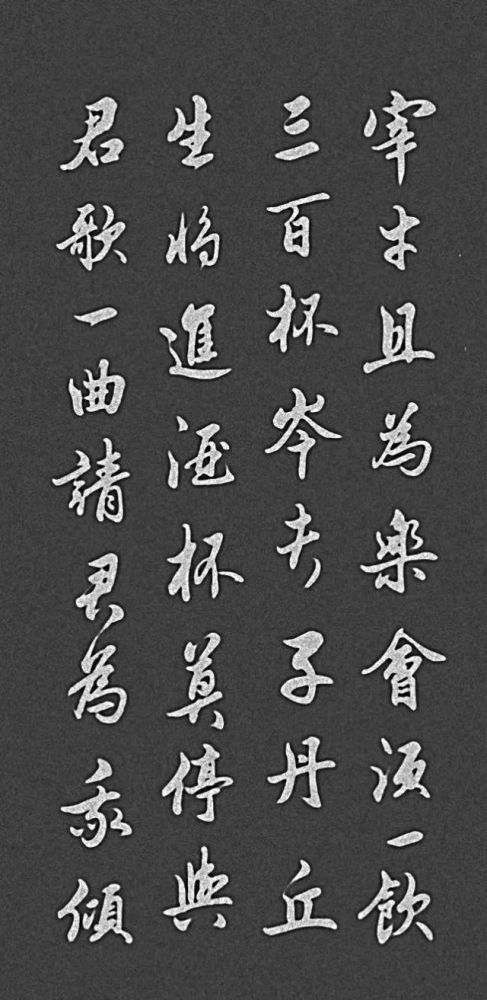 宰牛且為樂會須一飲
三百杯岑夫子丹丘
生將進酒杯莫停與
君歌一曲請君為我傾